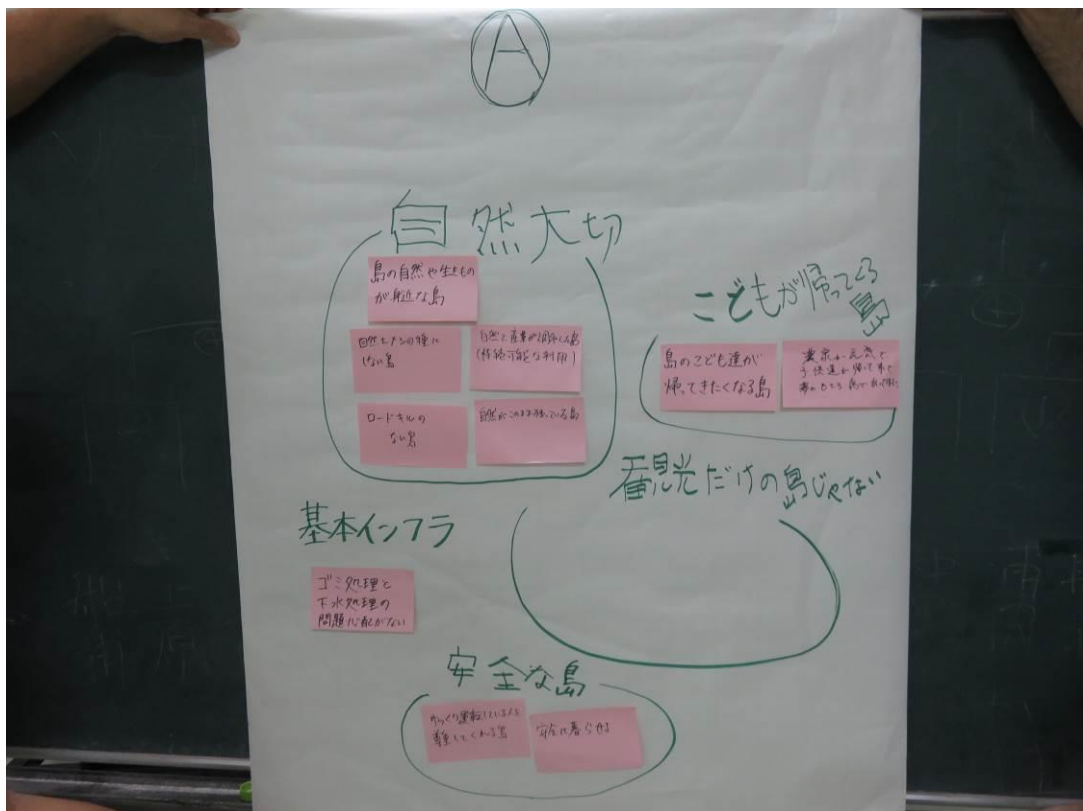 A
自然大切
島の自然や生きもの
が身近な島
自然をダシの種に
しない島
自然と産業が調和した島
(持続可能な利用)
ロードキルの
ない島
自然がこのまま残っている島
こどもが帰ってくる
島
島のこども達が
帰ってきたくなる島
農業が元気で
子供達が帰って来て
観光だけの島じゃない
基本インフラ
ゴミ処理と
下水処理の
問題心配がない
安全な島
ゆっくり運転している人を
尊重してくれる島
安全に暮らせる